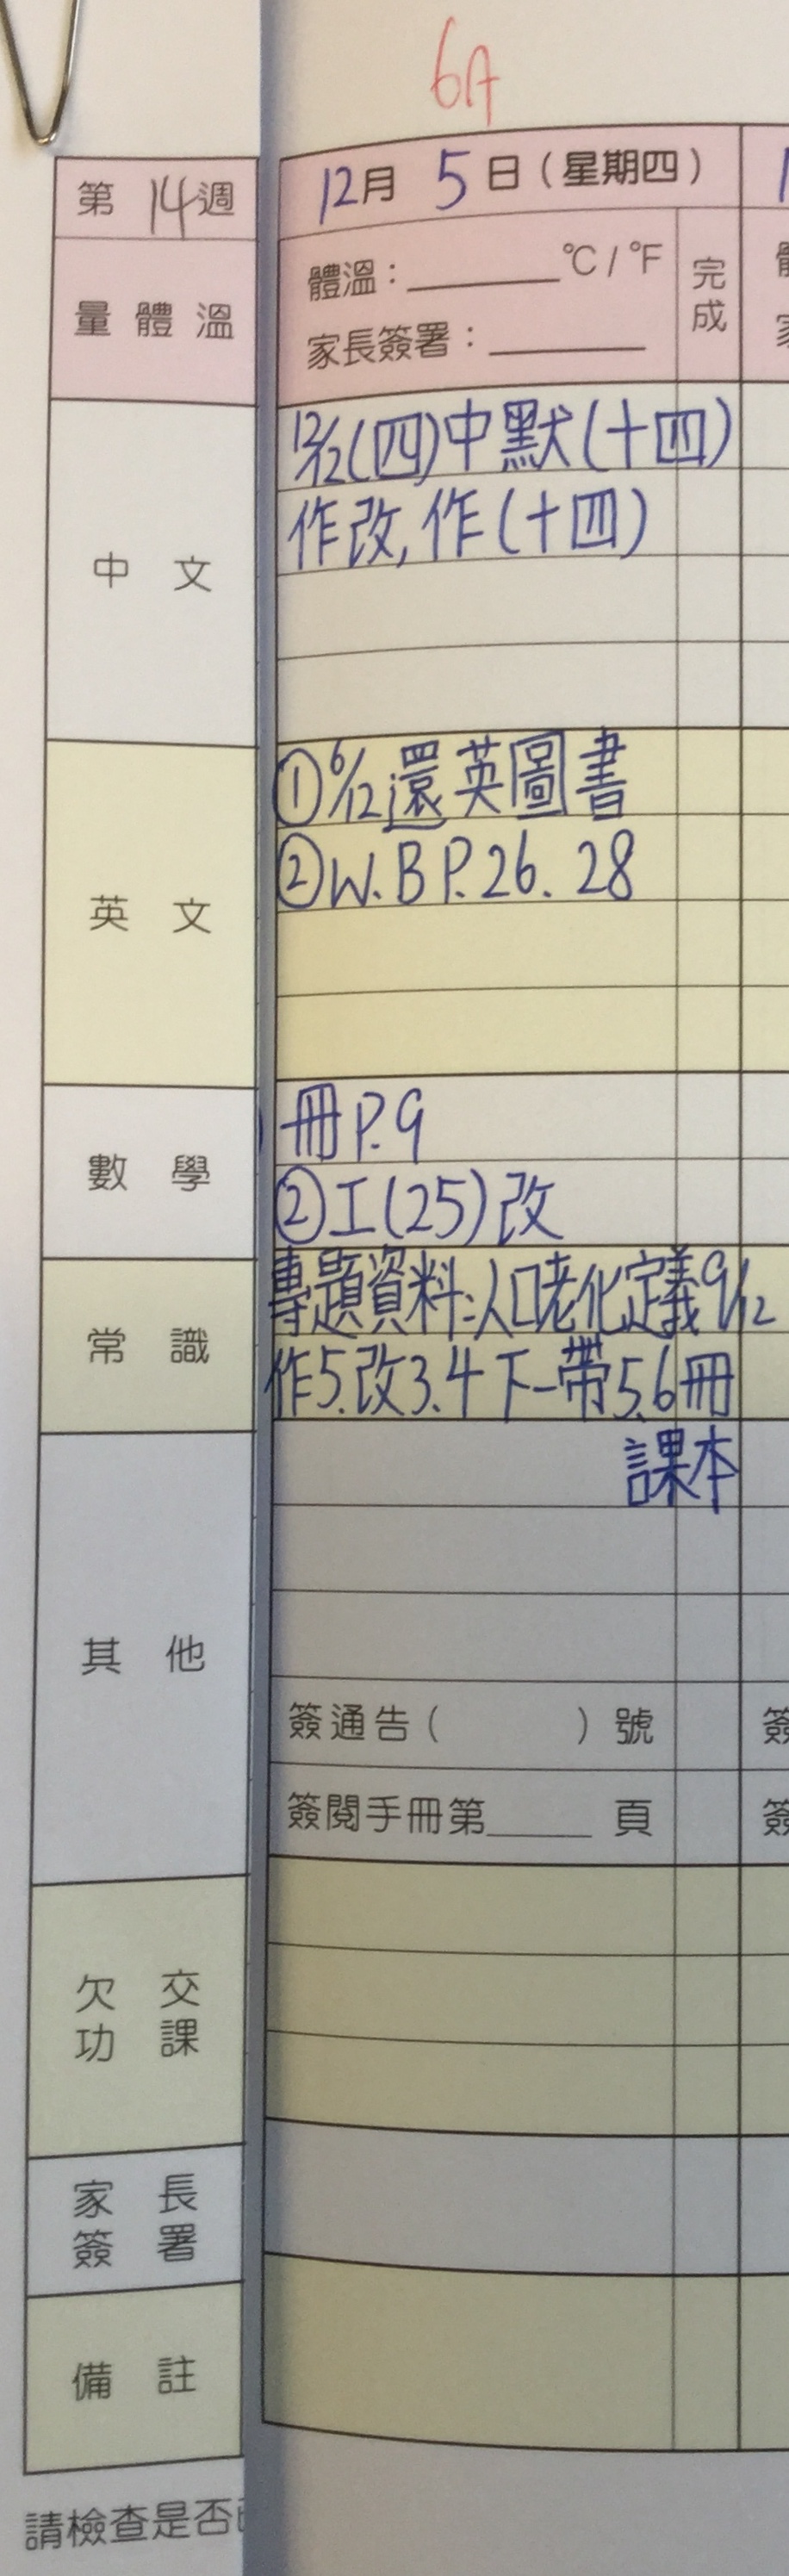 6A
第14週
12月5日（星期四）
量體溫
體溫：______°C / °F
家長簽署：______
完成
中文
12/12(四)中默(十四)
作改,作(十四)
英文
①6/12還英圖書
②W.B P.26. 28
數學
冊P.9
②工(25)改
常識
專題資料:人口老化定義9/12
作5.改3.4下一帶5.6冊
課本
其他
簽通告（　　　）號
簽閱手冊第______頁
簽
簽
欠交功課
家長簽署
備註
請檢查是否